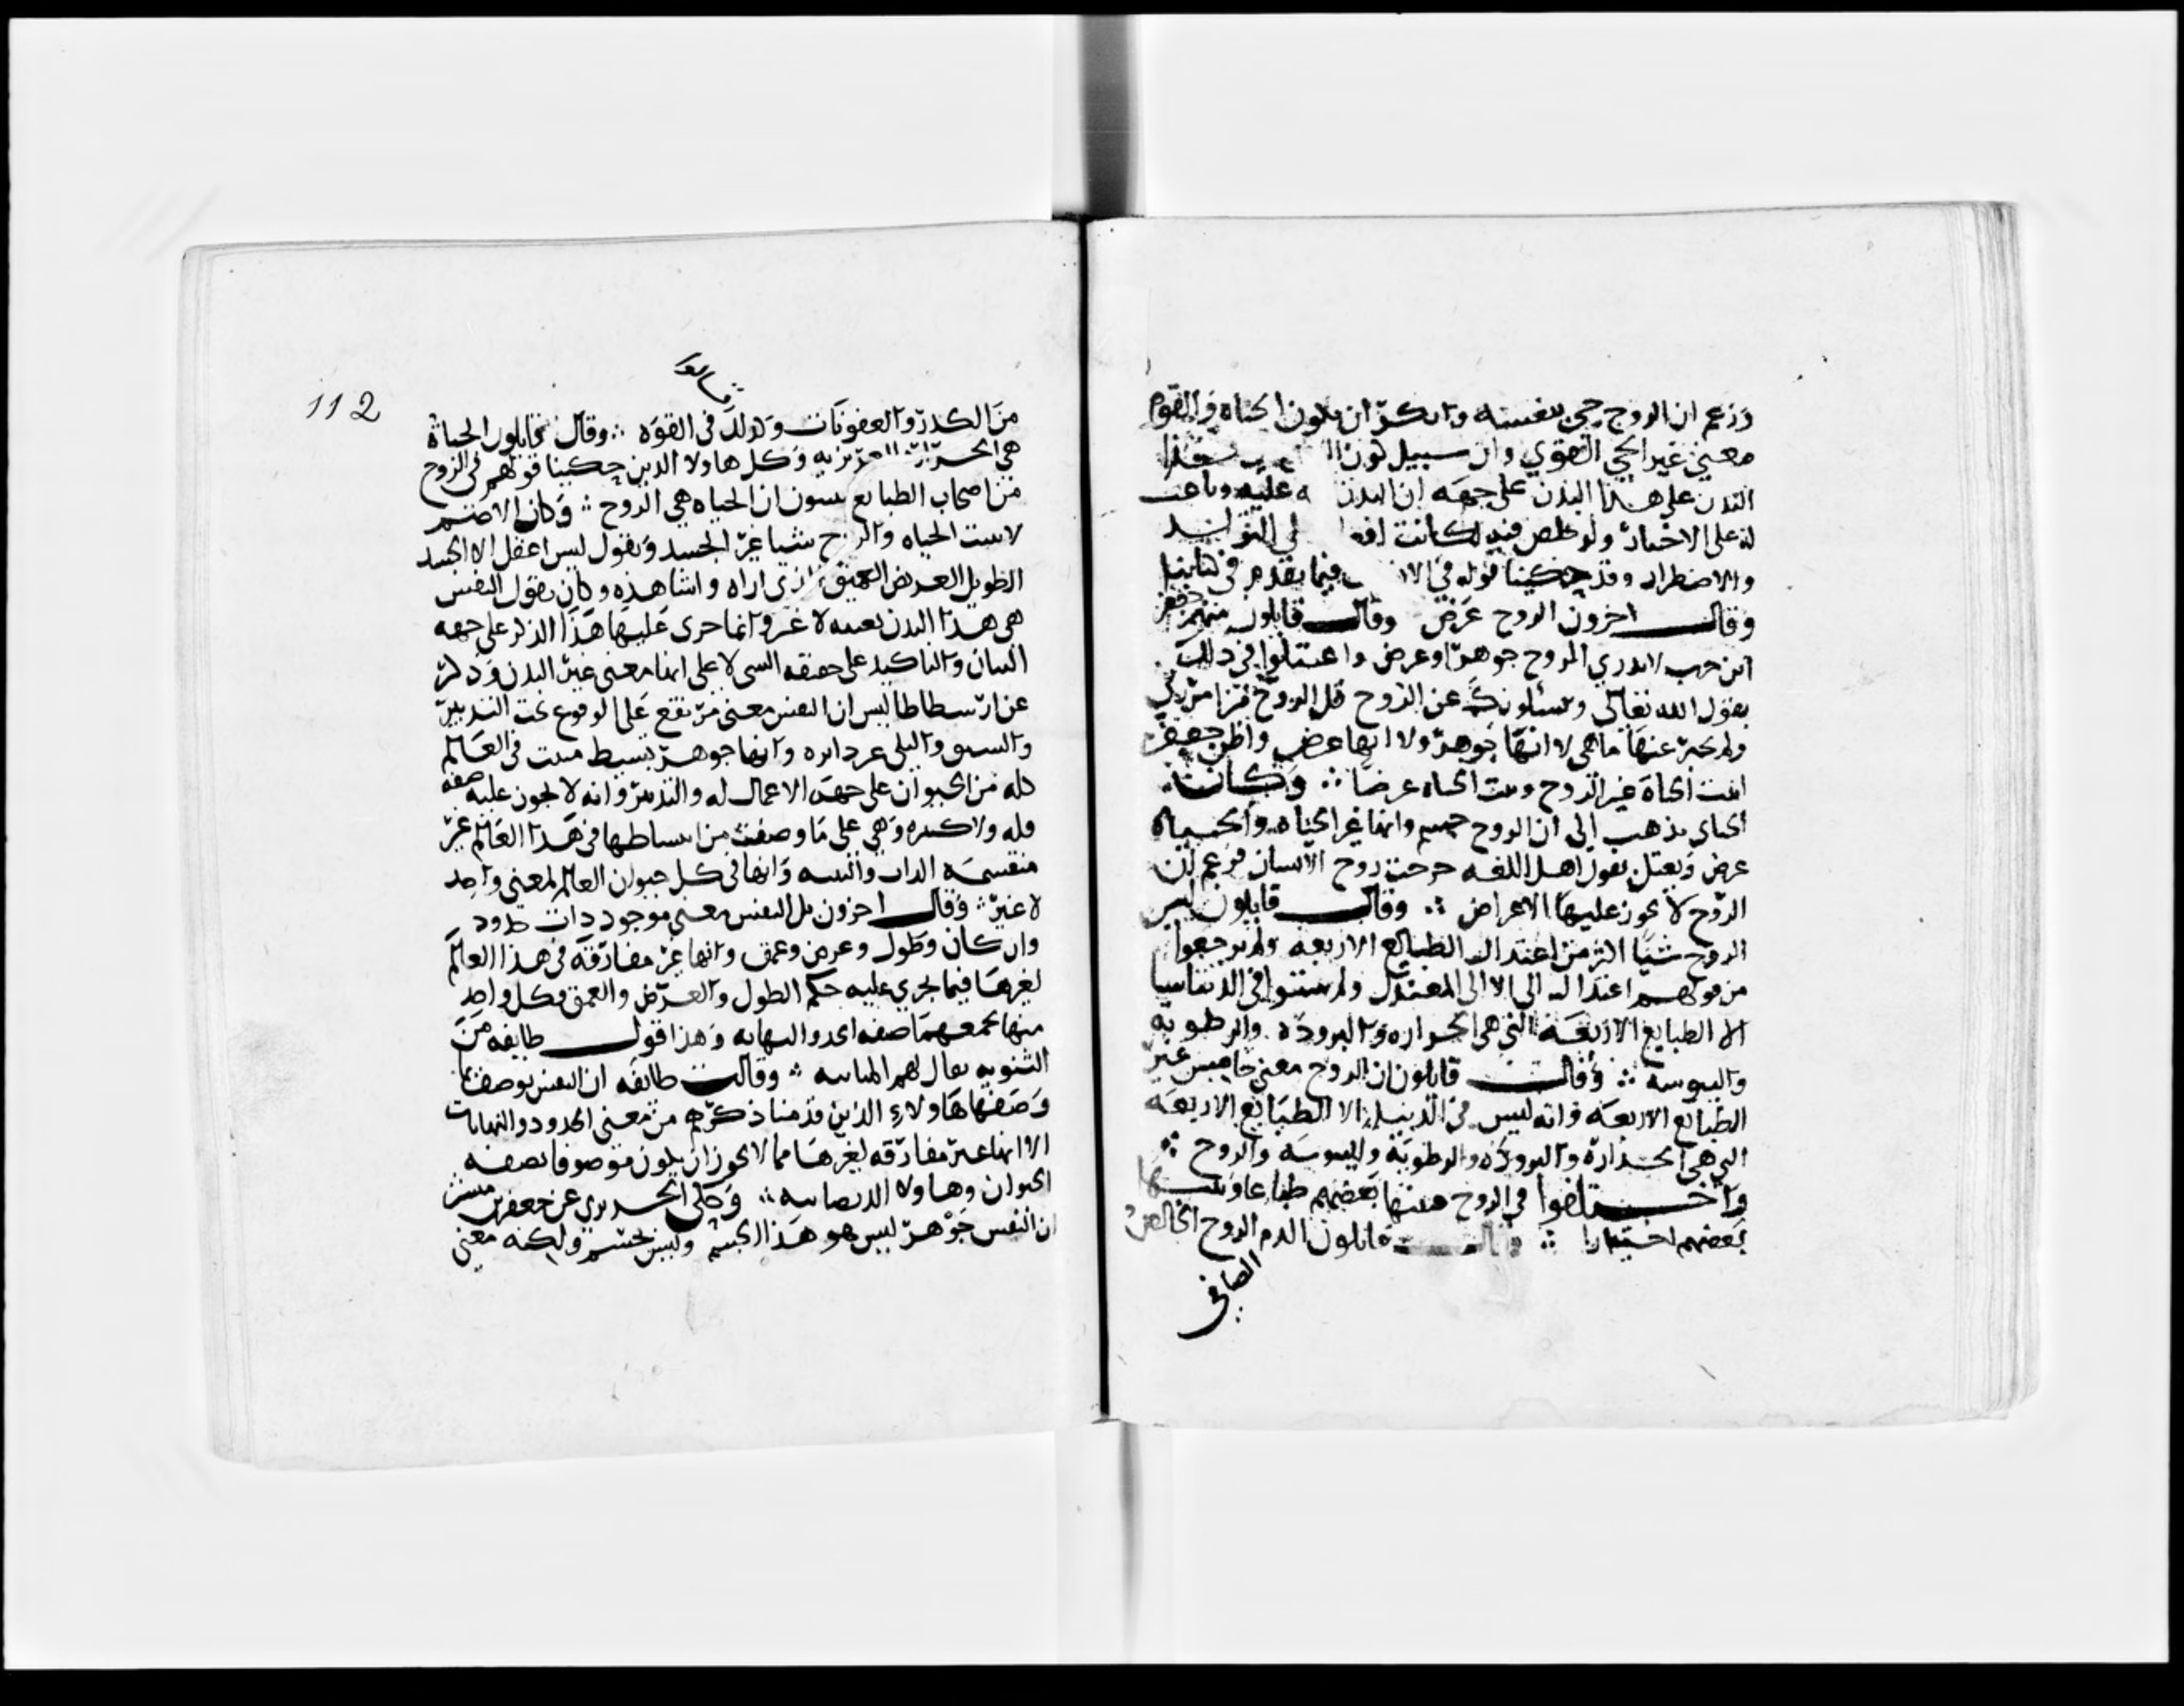 وزعم ان الروح حي بنفسه وانكر ان يكون الحياه والقوه
معنى غير الحي القوي وان سبيل كون الروح في هذا
البدن على هذا البدن على جهه ان البدن عليه وباعث
له على الاختيار ولو خلص منه لكانت افعا على التولد
والاضطرار وقد حكينا قوله في الانسان فيما تقدم من كتابنا
وقال اخرون الروح عرض وقال قايلون منهم جعفر
ابن حرب لا ندري الروح جوهر او عرض واعتلوا في ذلك
بقول الله تعالى ويسئلونك عن الروح قل الروح من امر ربي
ولم يخبر عنها ما هي لا انها جوهر ولا انها عرض واظن جعفر
اثبت الحياة غير الروح وثبت الحياه عرضا ∴ وكان
الجباي يذهب الى ان الروح جسم وانها غير الحياه والحياه
عرض ويعتل بقول اهل اللغه خرجت روح الانسان فزعم ان
الروح لا يجوز عليها الاعراض ∴ وقال قايلون ليس
الروح شيا اكثر من اعتدال الطبايع الاربعه ولم يرجعوا
من قولهم اعتدال الى الا الى المعتدل ولم يثبتوا في الدنيا شيا
الا الطبايع الاربعه التي هي الحراره والبروده والرطوبه
واليبوسه ∴ وقال قايلون ان الروح معنى خامس غير
الطبايع الاربعه وانه ليس في الدنيا الا الطبايع الاربعه
التي هي الحرارة والبرودة والرطوبة واليبوسه والروح ∴
واختلفوا في الروح فثبتها بعضهم طباعا وثبتها
بعضهم اختيارا ∴ وقال قايلون الدم الروح الخالص
الصافي
112
قالوا
من الكدر والعفونات وكذلك في القوه ∴ وقال قايلون الحياة
هي الحرارة الغريزيه وكل هاولا الذين حكينا قولهم في الروح
من اصحاب الطبايع يثبتون ان الحياه هي الروح ∴ وكان الاصم
لا يثبت الحياه والروح شيا غير الجسد ويقول ليس اعقل الا الجسد
الطويل العريض العميق الذي اراه واشاهده وكان يقول النفس
هي هذا البدن بعينه لا غير وانما جرى عليها هذا الذكر على جهه
البيان والتاكيد على حقيقه الشي لا على انها معنى غير البدن وذكر
عن ارسطاطاليس ان النفس معنى مرتفع على الوقوع تحت التدبير
والنشو والبلى غير داثره وانها جوهر بسيط منبث في العالم
كله من الحيوان على جهه الاعمال له والتدبير وانه لا تجوز عليه صفه
قله ولا كثره وهي على ما وصفت من انبساطها في هذا العالم غير
منقسمه الذات والبنيه وانها في كل حيوان العالم لمعنى واحد
لا غير ∴ وقال اخرون بل النفس معنى موجود ذات حدود
واركان وطول وعرض وعمق وانها غير مفارقه في هذا العالم
لغيرها فيما يجري عليه حكم الطول والعرض والعمق فكل واحد
منها يجمعهما صفه الحد والنهايه وهذا قول طايفه من
الثنويه يقال لهم المنانيه ∴ وقالت طايفه ان النفس توصف بما
وصفها هاولاء الذين قدمنا ذكرهم من معنى الحدود والنهايات
الا انها غير مفارقه لغيرها مما لا يجوز ان يكون موصوفا بصفه
الحيوان وهاولا الديصانيه ∴ وحكى الحريري عن جعفر بن مبشر
ان النفس جوهر ليس هو هذا الجسم وليس بجسم ولكنه معنى